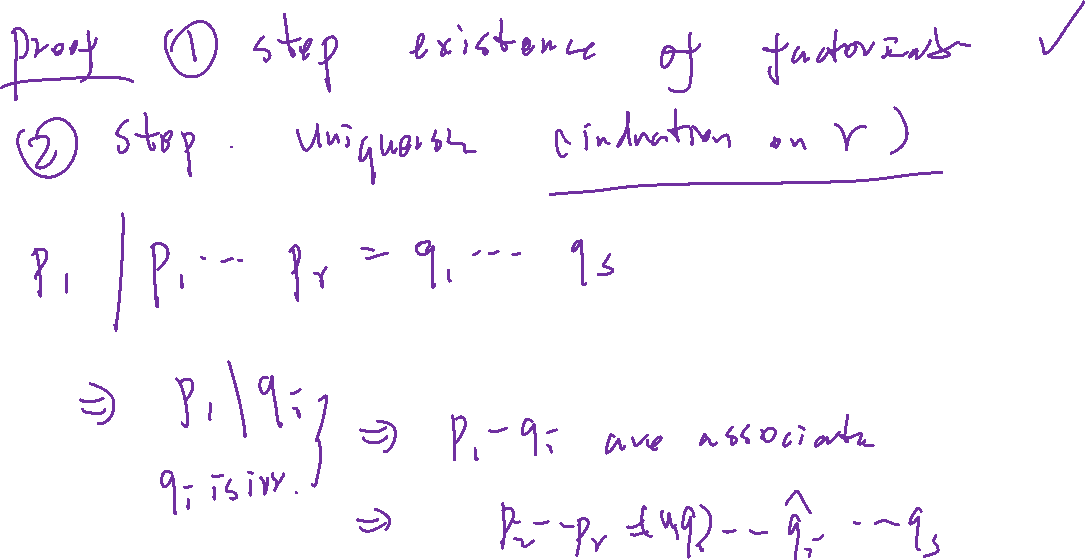 Proof ① step existence of factorizats ✓
② step. Uniqueness (induction on r)
P₁ | P₁ ... Pᵣ = q₁ ... qₛ
⇒ P₁ | qᵢ } ⇒ P₁ - qᵢ are associate
qᵢ is irr.
⇒ P₂ -- Pᵣ = (u q₁) -- q̂ᵢ -- qₛ